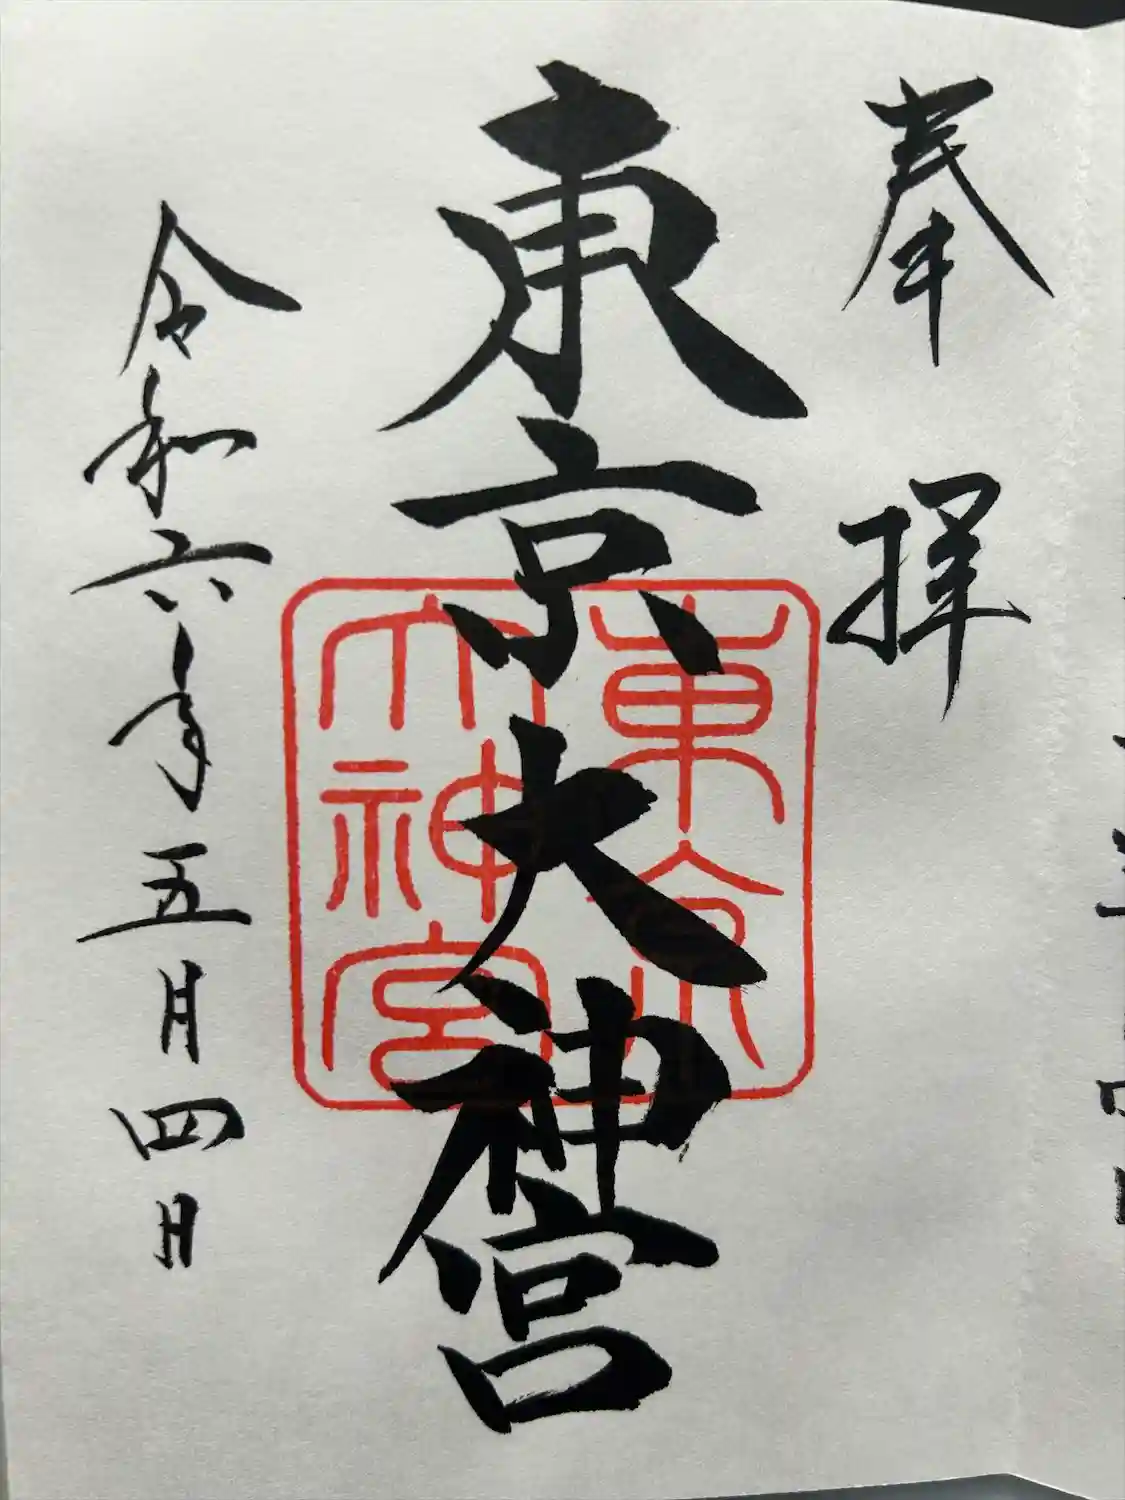 奉拝
東京大神宮
東京大神宮
令和六年五月四日